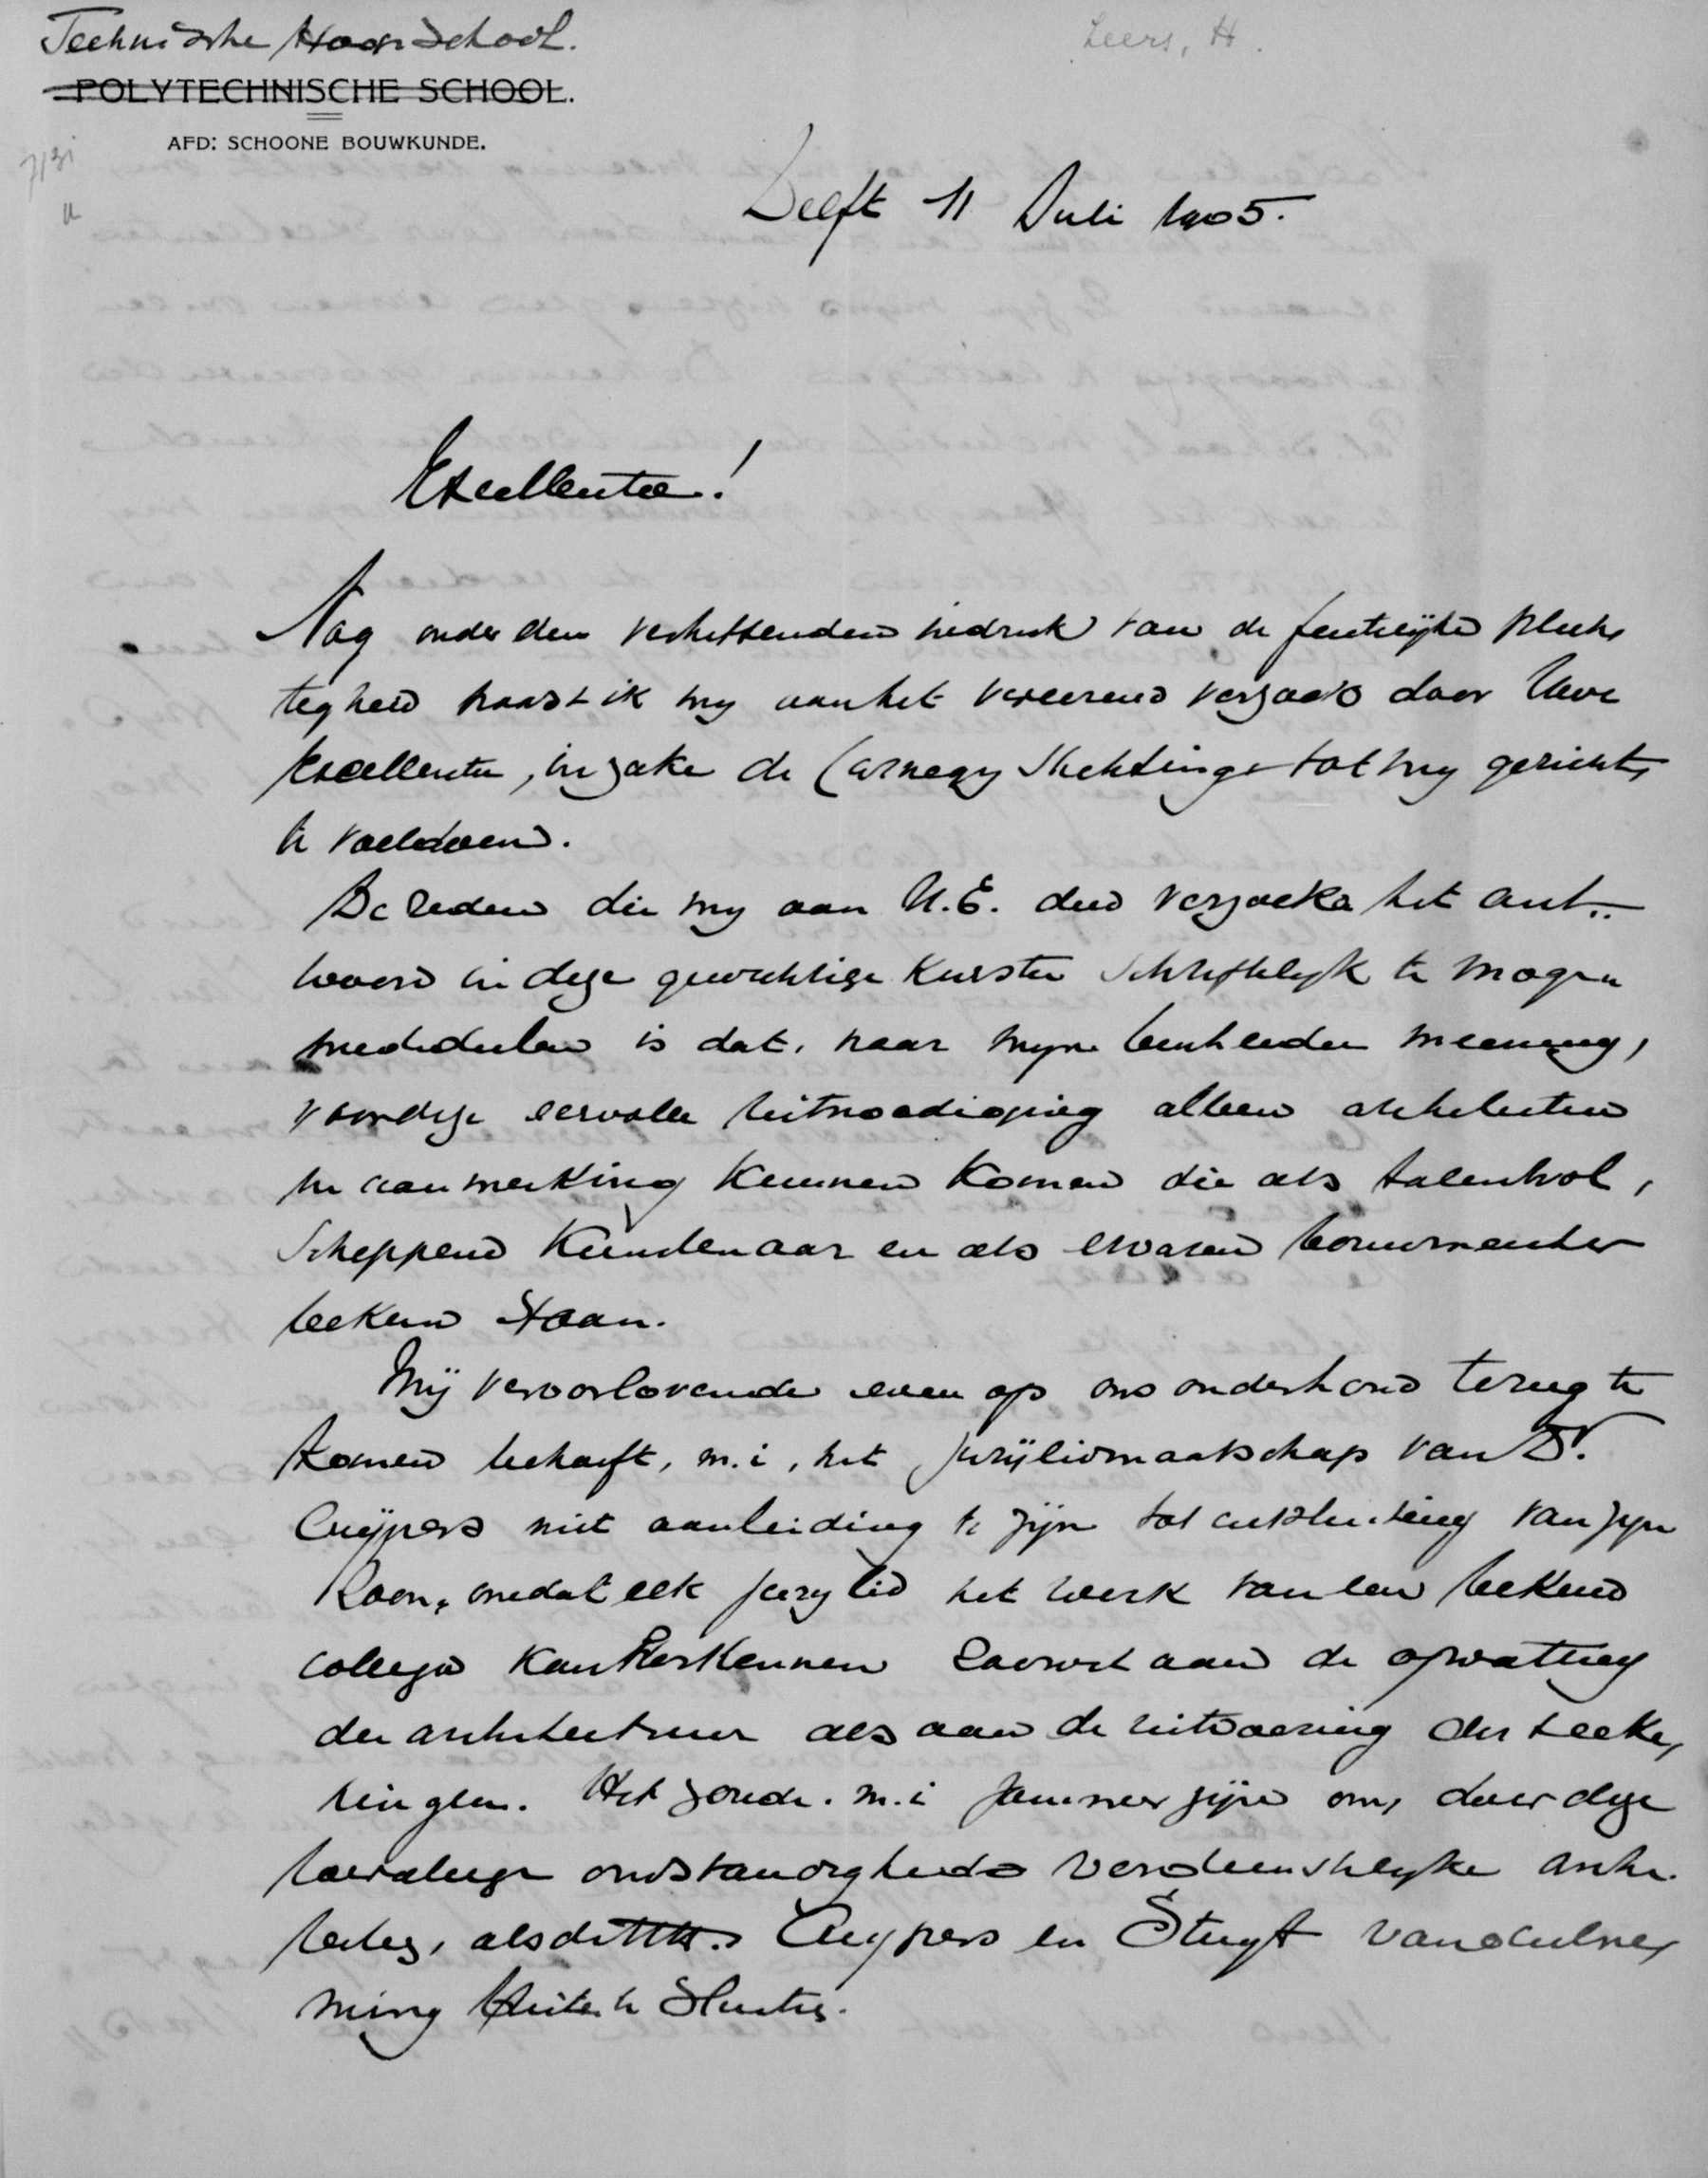 Technische Hoogeschool.
Leers, H.
POLYTECHNISCHE SCHOOL.
AFD: SCHOONE BOUWKUNDE.
Delft 11 Juli 1905.
Excellentie!
Nog onder den verheffenden indruk van de feestelijke plech,
tigheid haast ik my aan het vereerend verzoek door Uwe
Excellentie, in zake de Carnegy Stichting tot my gericht,
te voeldoen.
De reden die my aan U.E. deed verzoeken het ant..
woord in deze gewichtige kwestie schriftelyk te mogen
mededeelen is dat, naar myne bescheiden meening,
voor deze eervolle uitnoodiging alleen architecten
in aanmerking kunnen komen die als talentvol,
scheppend kunstenaar en als ervaren bouwmeester
bekend staan.
Mij veroorlovende even op ons onderhoud terug te
komen behoeft, m.i, het jurylidmaatschap van Dr.
Cuijpers niet aanleiding te zijn tot uitsluiting van zyn
Zoon, omdat elk jury lid het werk van een bekend
collega kan herkennen zoowel aan de opvatting
der architectuur als aan de uitvoering der teeke,
ningen. Het zoude. m.i jammer zijn om, door deze
toevallige omstandigheid verdienstelyke archi.
tecten, als de HH. Cuypers en Stuyt van deelne,
ming uit te sluiten.